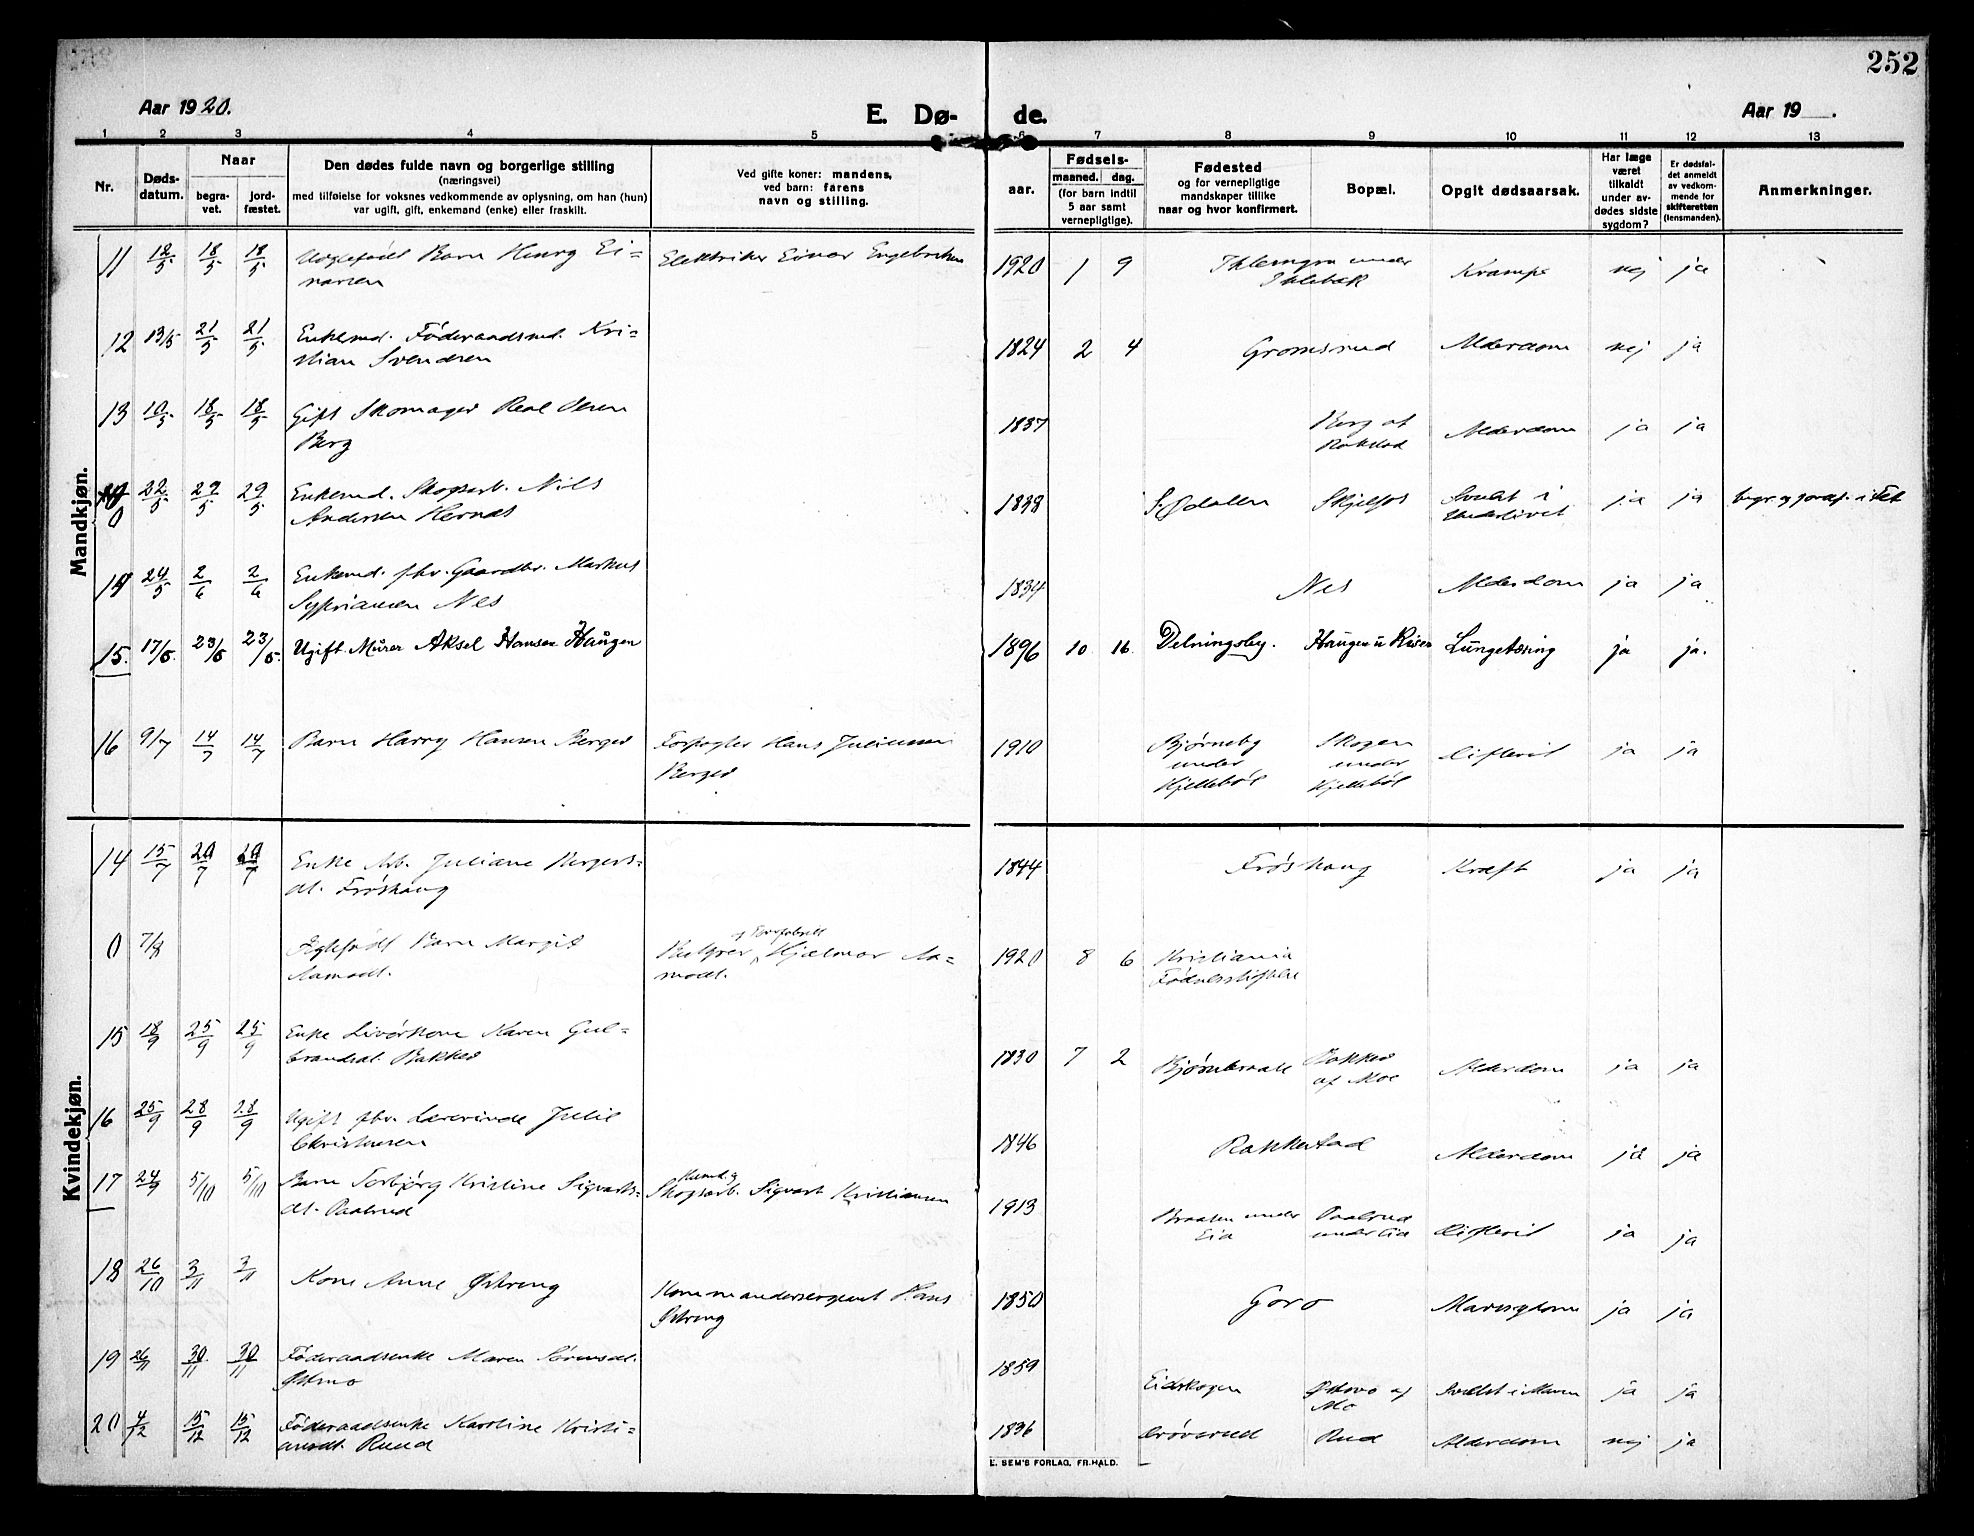 252
Aar 1920.
E. Dø-
de.
Aar 19 .
1 2 3 4 5 6 7 8 9 10 11 12 13
Nr.
Døds-
datum.
Naar
begra-
vet.
jord-
fæstet.
Den dødes fulde navn og borgerlige stilling
(næringsvei)
med tilføielse for voksnes vedkommende av oplysning, om han (hun)
var ugift, gift, enkemand (enke) eller fraskilt.
Ved gifte koner: mandens,
ved barn: farens
navn og stilling.
aar.
Fødsels-
maaned. dag.
(for barn indtil
5 aar samt
vernepligtige).
Fødested
og for vernepligtige
mandskaper tillike
naar og hvor konfirmert.
Bopæl.
Opgit dødsaarsak.
Har læge
været
tilkaldt
under av-
dødes sidste
sygdom?
Er dødsfal-
det anmeldt
av vedkom-
mende for
skifteretten
(lensmanden).
Anmerkninger.
Mandkjøn.
11 12/5 18/5 18/5 Uegtefødt Barn Henry Ei-
narsen
Elektriker Einar Engebretsen
1920 1 9
Krampe nej ja
12 13/5 21/5 21/5 Enkemd. Föderaadsmd. Kri-
stian Svendsen
1824 2 4 Gromsrud Alderdom nej ja
13 10/5 18/5 18/5 Gift Skomager Olsen
Berg
1837 Berg af
Alderdom ja ja
0 22/5 29/5 29/5 Enkemd. Skogsarb. Nils
Andersen Hernæs
1838 S. Odalen Skjelfos Svulst i
Underlivet
ja ja begr. og jordf. i Fet
14 24/5 2/6 2/6 Enkemd. fhv. Gaardbr. Markus
Sypriansen Nes
1834 Nes Alderdom ja ja
15. 17/6. 23/6 23/6. Ugift Murer Aksel Hansen Haugen
1896 10 16. Delningsby. Haugen u Risen Lungetæring ja ja.
16 9/7 14/7 14/7 Barn Harry Hansen Berger
Forpagter Hans Juliussen
Berger
1910 Bjørneby
under
Kjellebøl
Skogen
under
Kjellebøl
Difterit ja ja
Kvindekjøn.
14 15/7 20/7 20/7 Enke Arb. Juliane Bergers-
dt. Fröshaug
1844 Fröshaug Kræft ja ja
0 7/8 Egtefødt Barn Margit
Aamodt.
Hjalmar Aa-
modt.
1920 8 6 Kristiania
Fødselsstiftelse
15 18/9 25/9 25/9 Enke Livörkone Karen Gul-
brandsdt. Bakken
1830 7 2 Bjørnbraate Bakken
af Moe
Alderdom ja ja
16 25/9 28/9 28/9 Ugift fhv. Lærerinde Julie
Christensen
1846 Rakkestad Alderdom ja ja
17 24/9 5/10 5/10 Barn Torbjørg Kristine Sigvarts-
dt. Paalrud
Skogsarb. Sigvart Kristiansen
1913 Braaten under
Eia
Paalrud
under Eia
Difterit ja ja
18 26/10 3/11 3/11 Kone Anne Østreng
Kommandersergeant Hans
Østreng
1850 Goro ja ja
19 26/11 30/11 30/11 Föderaadsenke Maren Sörensdt.
Østmo
1859 Eidskogen Østmo af
Mo
Svulst i Maven ja ja
20 4/12 15/12 15/12 Föderaadsenke Karoline Kristi-
ansdt. Ruud
1836 Rud Alderdom nej ja
E. SEM'S FORLAG, FR.HALD.